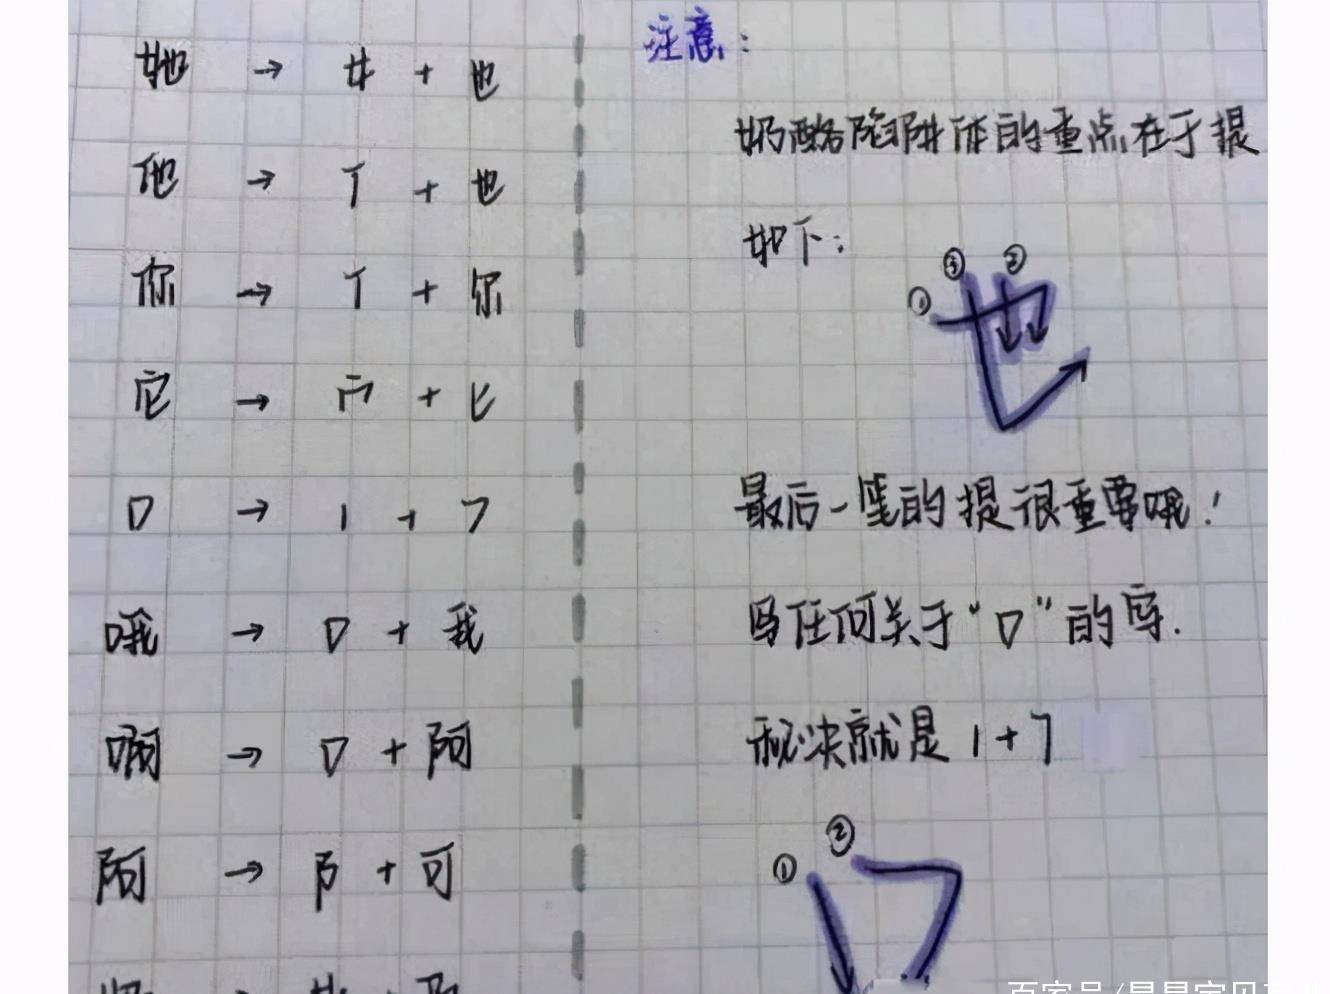 她 → 女 + 也
他 → 亻 + 也
你 → 亻 + 尔
它 → 宀 + 匕
口 → 1 + 7
哦 → 口 + 我
啊 → 口 + 阿
阿 → 阝 + 可
注意：
奶酪陷阱体的重点在于提
如下：
① ③ ②
也
最后一笔的提很重要哦！
写任何关于“口”的字.
秘决就是 1+7
① ②
口